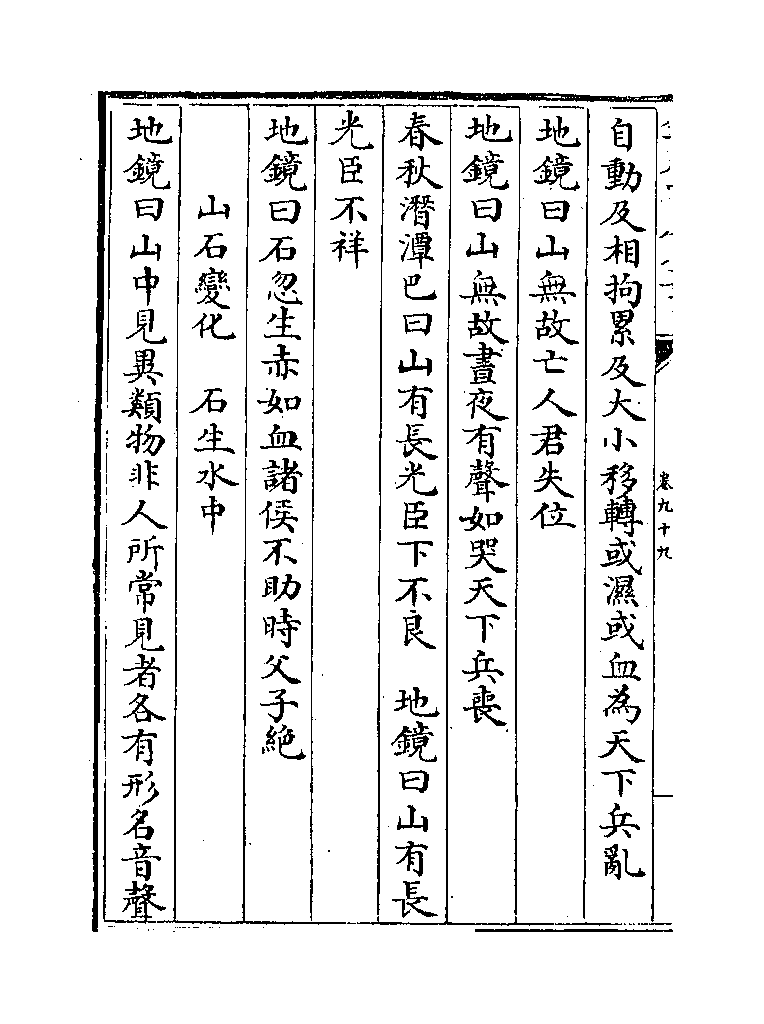 自動及相拘累及大小移轉或濕或血為天下兵亂
地鏡曰山無故亡人君失位
地鏡曰山無故晝夜有聲如哭天下兵喪
春秋潛潭巴曰山有長光臣下不良　地鏡曰山有長
光臣不祥
地鏡曰石忽生赤如血諸侯不助時父子絶
山石變化　石生水中
地鏡曰山中見異類物非人所常見者各有形名音聲
卷九十九